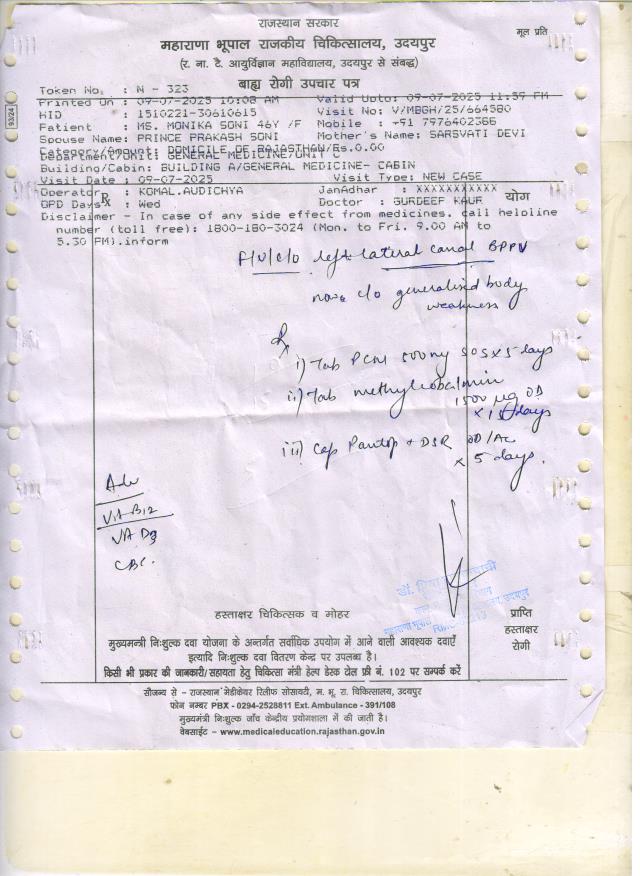 राजस्थान सरकार
मूल प्रति
महाराणा भूपाल राजकीय चिकित्सालय, उदयपुर
(र. ना. टै. आयुर्विज्ञान महाविद्यालय, उदयपुर से संबद्ध)
बाह्य रोगी उपचार पत्र
Token No. : N - 323
Printed On : 09-07-2025 10:08 AM Valid Upto: 09-07-2025 11:59 PM
HID : 1510221-30610615 Visit No: V/MBGH/25/664580
Patient : MS. MONIKA SONI 46Y /F Mobile : +91 7976402366
Spouse Name: PRINCE PRAKASH SONI Mother's Name: SARSVATI DEVI
Category/Amount: DOMICILE OF RAJASTHAN/Rs.0.00
Department/Unit: GENERAL MEDICINE/UNIT C
Building/Cabin: BUILDING A/GENERAL MEDICINE- CABIN
Visit Date : 09-07-2025 Visit Type: NEW CASE
Operator : KOMAL.AUDICHYA JanAdhar : XXXXXXXXXXX
योग
OPD Days : Wed Doctor : GURDEEF KAUR
Disclaimer - In case of any side effect from medicines. call heloline
number (toll free): 1800-180-3024 (Mon. to Fri. 9.00 AM to
5.30 PM).inform
93/24
F/U/c/o left lateral canal BPPV
now c/o generalised body
weakness
Rx
i) Tab PCM 500mg SOS x 5 days
ii) Tab methylcobalmin
1500 µg OD
x 15 days
iii) Cap Pantop + DSR OD/AC
x 5 days.
Adv
Vit B12
Vit D3
CBC.
हस्ताक्षर चिकित्सक व मोहर
प्राप्ति
हस्ताक्षर
रोगी
मुख्यमन्त्री निःशुल्क दवा योजना के अन्तर्गत सर्वाधिक उपयोग में आने वाली आवश्यक दवाएँ
इत्यादि निःशुल्क दवा वितरण केन्द्र पर उपलब्ध है।
किसी भी प्रकार की जानकारी/सहायता हेतु चिकित्सा मंत्री हेल्प डेस्क टोल फ्री नं. 102 पर सम्पर्क करें
सौजन्य से - राजस्थान मेडीकेयर रिलीफ सोसायटी, म. भू. रा. चिकित्सालय, उदयपुर
फोन नम्बर PBX - 0294-2528811 Ext. Ambulance - 391/108
मुख्यमंत्री निःशुल्क जाँच केन्द्रीय प्रयोगशाला में की जाती है।
वेबसाईट - www.medicaleducation.rajasthan.gov.in